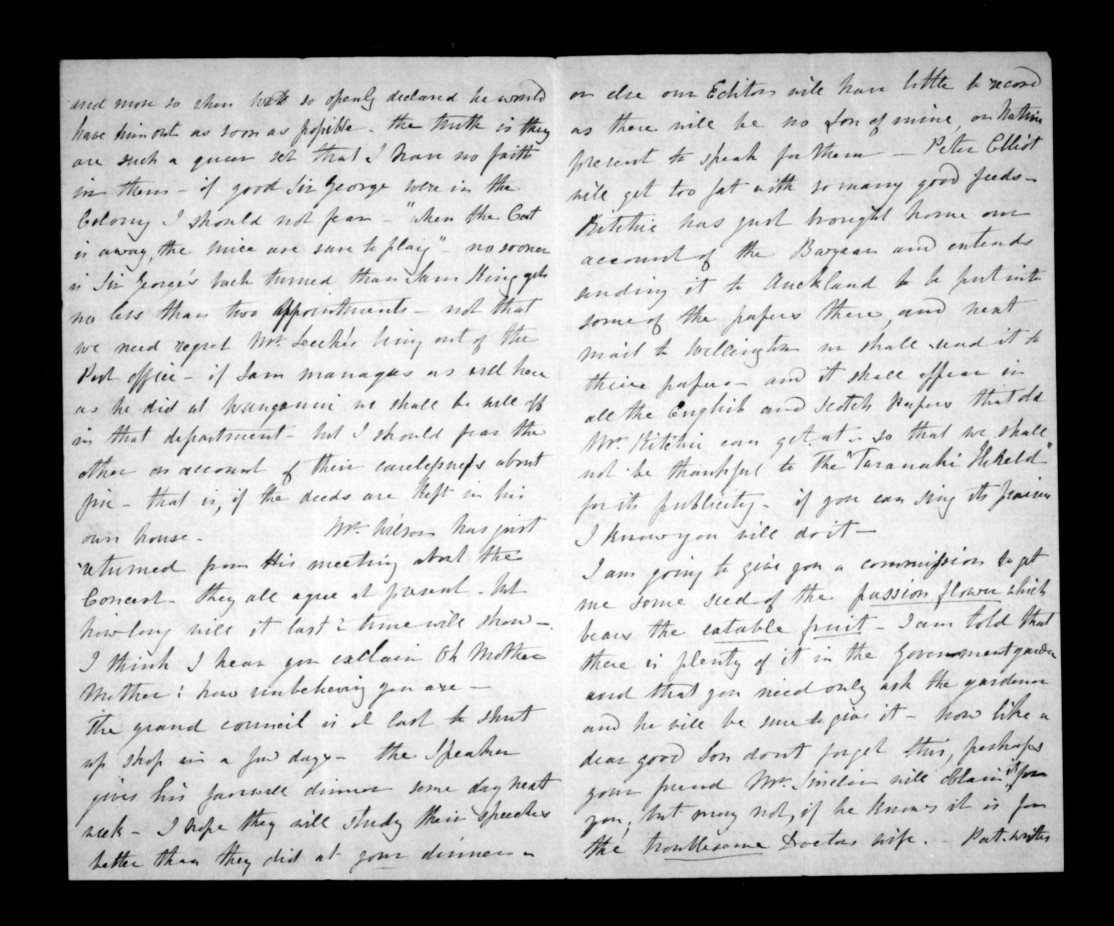 and more so when he so openly declared he would
have him out as soon as possible - the truth is they
are such a queer set that I have no faith
in them - if good Sir George were in the
Colony I should not fear - "when the Cat
is away, the mice are sure to play" - no sooner
is Sir George's back turned than Sam King gets
no less than two appointments - not that
we need regret Mr. being out of the
Post office - if Sam manages as well here
as he did at Wanganui we shall be well off
in that department - but I should fear the
other on account of their carelessness about
fire - that is, if the deeds are kept in his
own house - Mr. Wilson has just
returned from His meeting about the
Concert - they all agree at present - but
how long will it last? time will show -
I think I hear you exclaim Oh Mother
Mother! how unbelieving you are -
the grand council is at last to shut
up shop in a few days - the Speaker
gives his farewell dinner some day next
week - I hope they will study their speeches
better than they did at your dinner -
or else our Editors will have little to record
as there will be no Son of mine, or
present to speak for them - Peter Elliot
will get too fat with so many good feeds -
Ritchie has just brought home our
account of the Bazaar and entends
sending it to Auckland to be put into
some of the papers there, and next
mail to Wellington we shall send it to
their papers - and it shall appear in
all the English and Scotch Papers that old
Mr. Ritchie can get at - so that we shall
not be thankful to the "Taranaki Herald"
for its publicity - if you can sing its praises
I know you will do it -
I am going to give you a commission to get
me some seed of the passion flower which
bears the eatable fruit - I am told that
there is plenty of it in the Government garden
and that you need only ask the gardener
and he will be sure to give it - now like a
dear good Son don't forget this, perhaps
your friend Mr. Sinclair will obtain it for
you, but may not, if he knows it is for
the troublesome Doctors wife. - Pat. writes